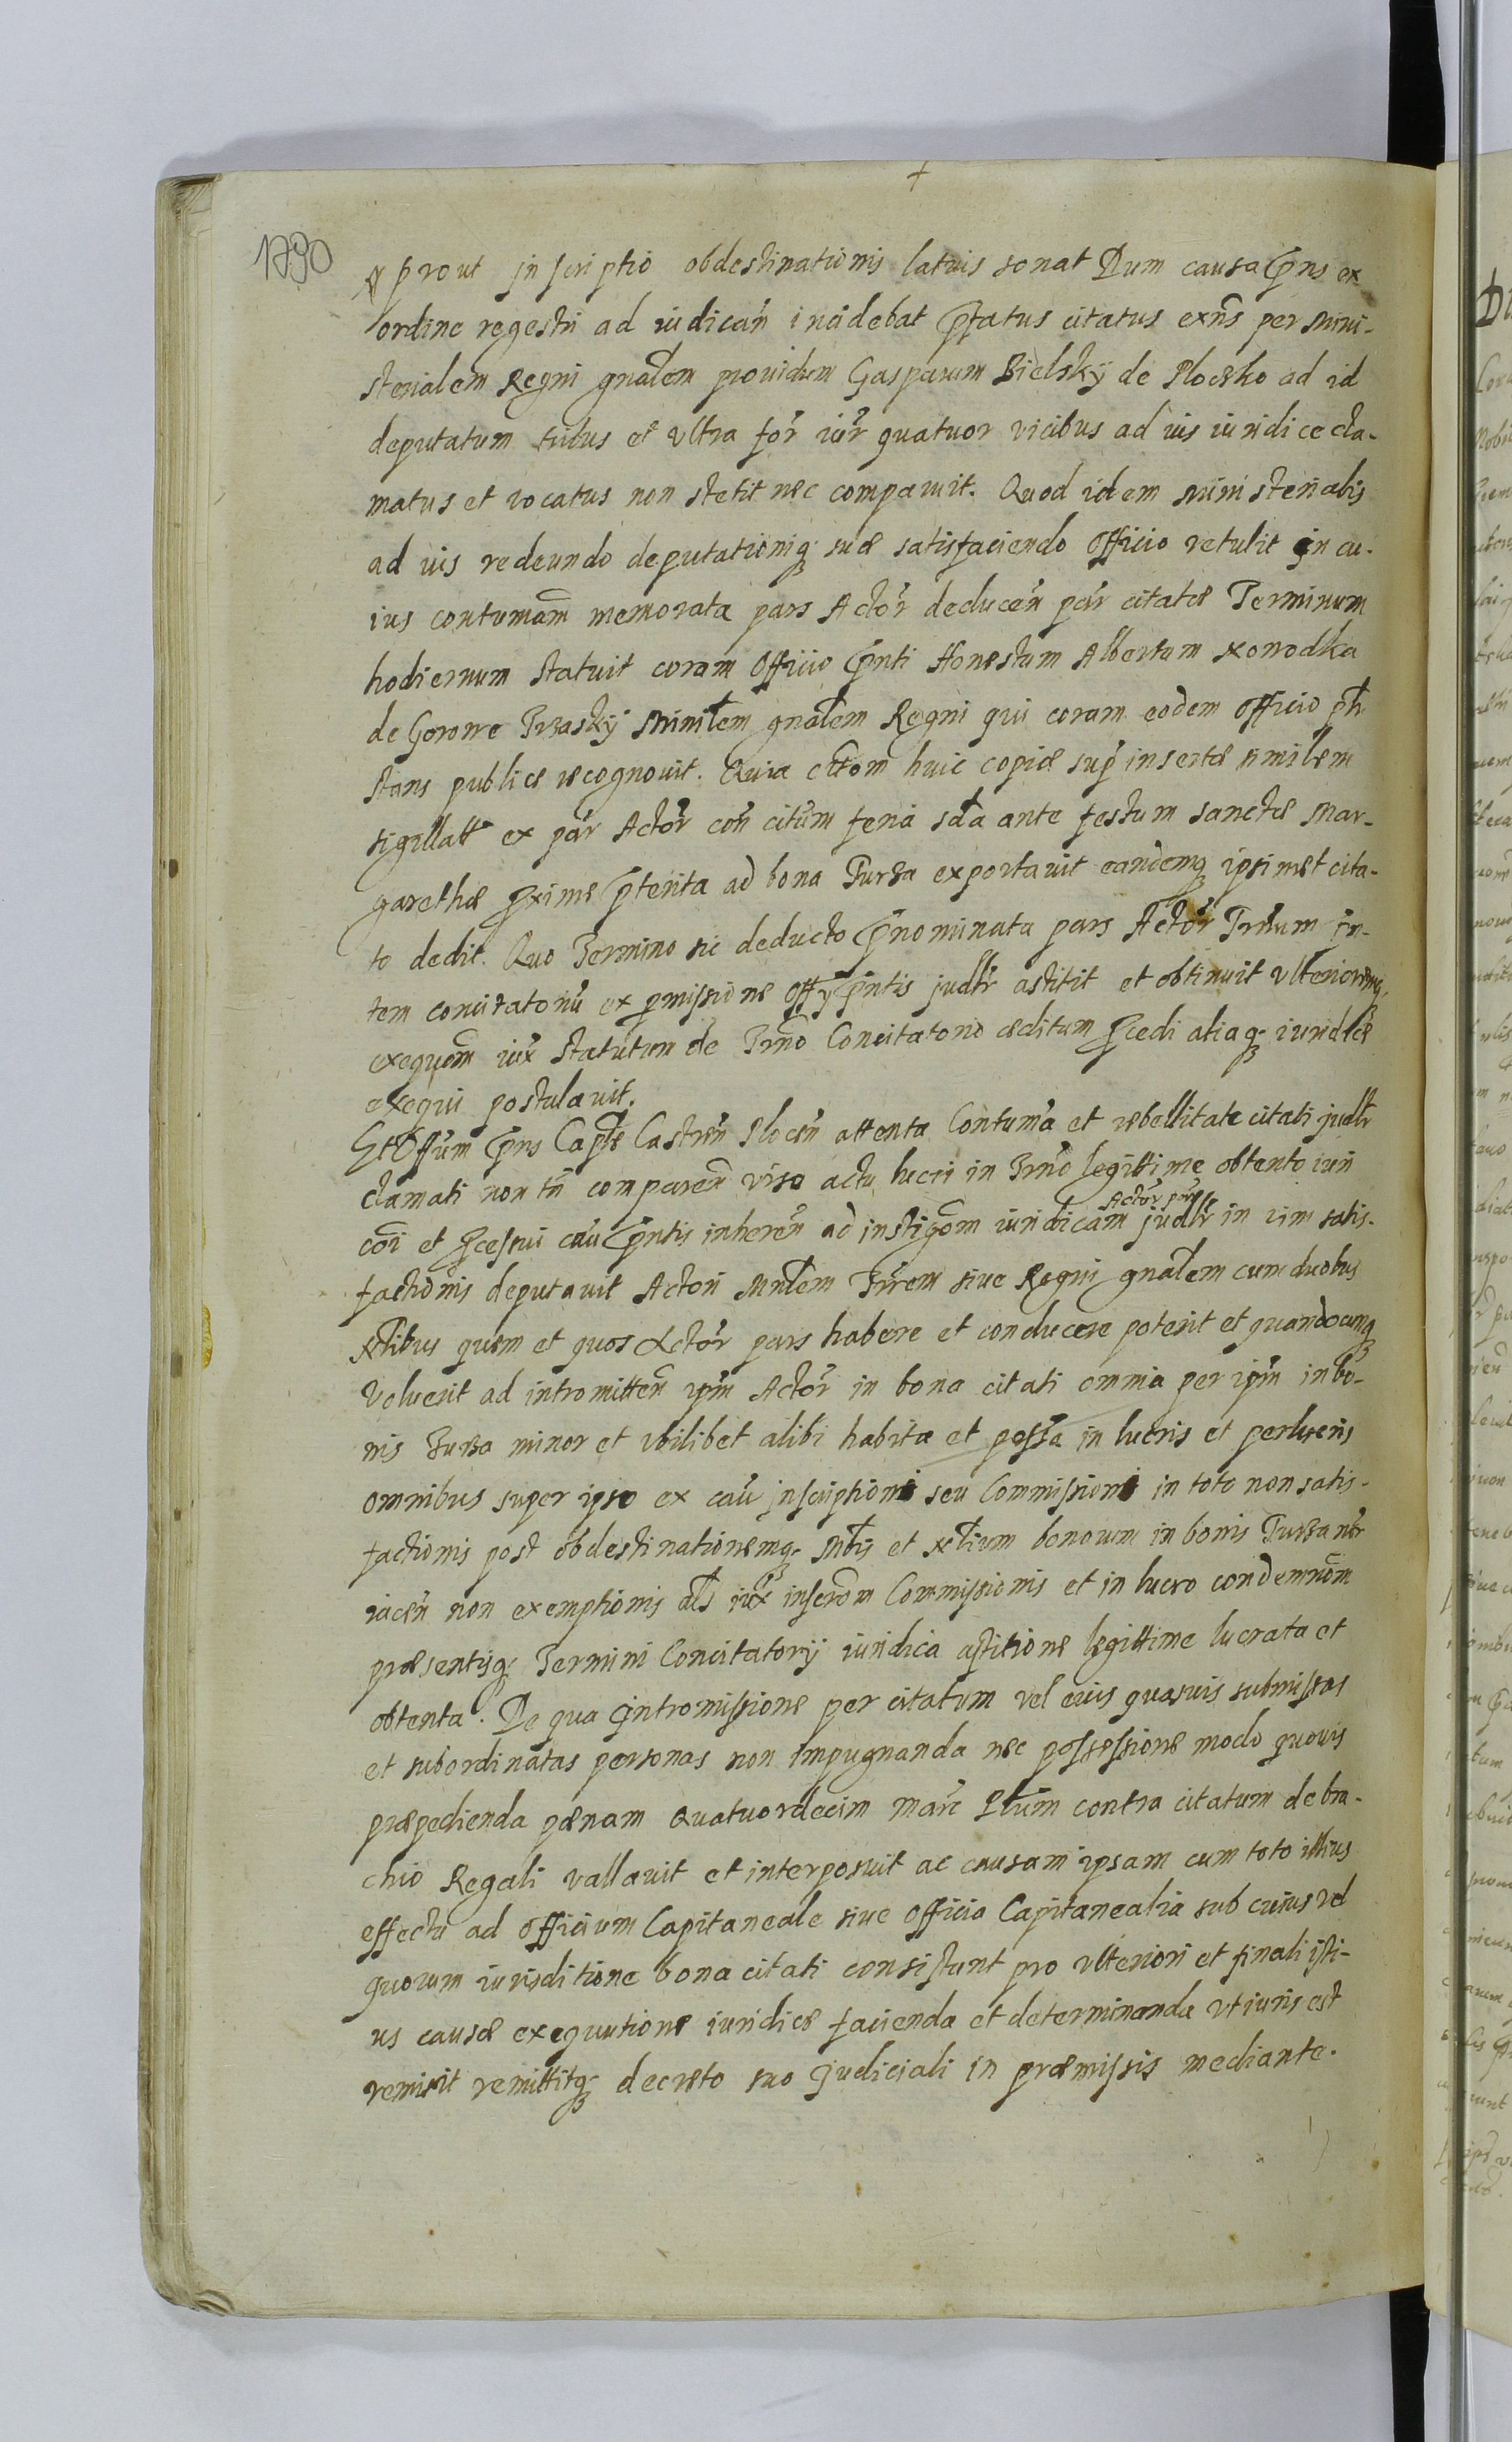 1790
prout inscriptio obdestinationis latius sonat Dum causa pns ex
ordine regestri ad iudican incidebat pfatus citatus exns per Mini-
sterialem Regni gnalem prouidum Gasparum Bielsky de Plocsko ad id
deputatum tribus et vltra for iur quatuor vicibus ad ius iuridice cla-
matus et vocatus non stetit nec comparuit. Quod idem Ministerialis
ad ius redeundo deputationiq suæ satisfaciendo Officio retulit in cu-
ius contumam memorata pars Actor deducen par citatæ Terminum
hodiernum statuit coram Officio pnti Honestum Albertum
de Gorowe Trzasky Minitem gnalem Regni qui coram eodem Officio pth
stans publice recognouit. Quia cittom huic copiæ sup insertæ similem
sigillatt ex par Actor con citum feria sda ante festum sanctæ Mar-
garethæ pxime pterita ad bona Turza exportauit eandemq ipsimet cita-
to dedit. Quo Termino sic deducto pnominata pars Actor Trnum pn-
tem concitatoriu ex pmissione Offy pntis judlr astitit et obtinuit vlterioremq
exequom iux statutum de Trno Concitatorio æditum pcedi aliaq iuridice
exequi postulauit.
Et Offium pns Caple Castren Plocen attenta Contuma et rebellitate citati judlr
clamati non tn comparen viso actu lucri in Trno legittime obtento iuri
coi et pcessui cau pntis inheren ad instigom iuridicam Actor par judlr in vim satis-
factionis deputauit Actori Mnlem Trrem siue Regni gnalem cum duobus
xtlibus quem et quos Actor pars habere et conducere poterit et quandocunq
Voluerit ad intromitten ipm Actor in bona citati omnia per ipm in bo-
nis Turza minor et vbilibet alibi habita et possa in lucris et perlucris
omnibus super ipso ex cau jnscriptioni seu Commissioni in toto non satis-
factionis post obdestinationemq Mtis et xtlium bonorum in bonis Turza mr
iacen non exemptionis als iux inserom Commissionis et in lucro condemnom
præsentisq Termini Concitatorij iuridica astitione legittime lucrata et
obtenta. De qua intromissione per citatum vel eius quasuis submissas
et subordinatas personas non impugnanda nec possessione modo quouis
præpedienda pænam Quatuordecim Marc Plium contra citatum de bra-
chio Regali vallauit et interposuit ac causam ipsam cum toto illius
effectu ad officium Capitaneale siue officia Capitanealia sub cuius vel
quorum iurisditione bona citati consistunt pro vlteriori et finali isti-
us causæ exequutione iuridice facienda et determinanda vt iuris est
remisit remittitq decreto suo judiciali in præmissis mediante.